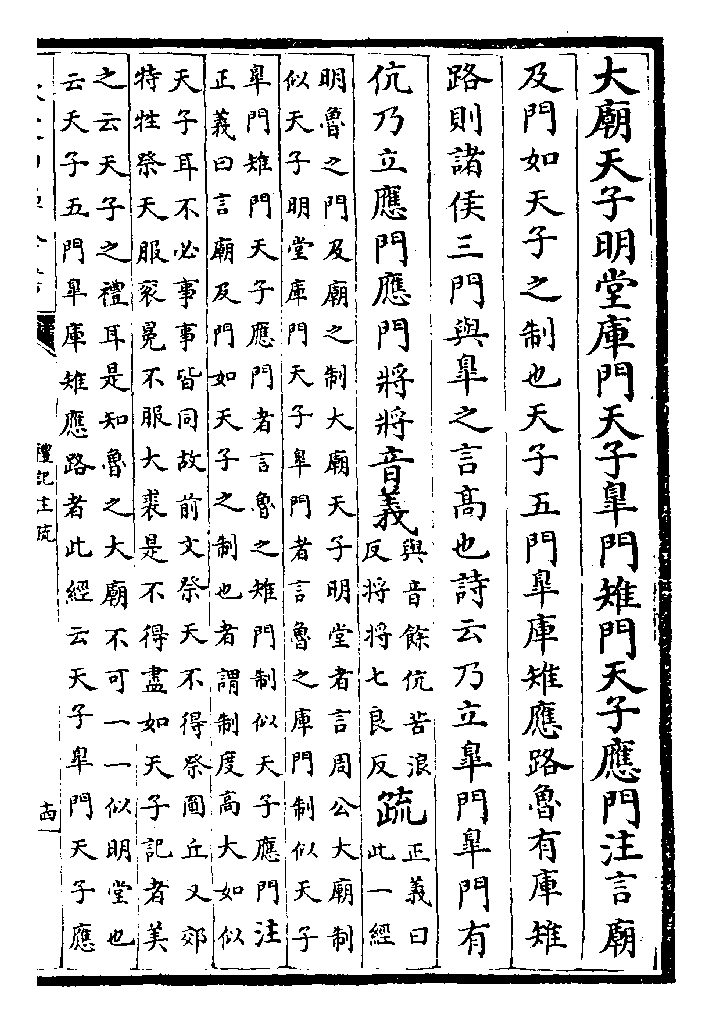 大廟天子明堂庫門天子臯門雉門天子應門注言廟
及門如天子之制也天子五門臯庫雉應路魯有庫雉
路則諸侯三門與臯之言高也詩云乃立臯門臯門有
伉乃立應門應門將將音義與音餘伉苦浪反將將七良反疏正義曰此一經
明魯之門及廟之制大廟天子明堂者言周公大廟制
似天子明堂庫門天子臯門者言魯之庫門制似天子
臯門雉門天子應門者言魯之雉門制似天子應門注
正義曰言廟及門如天子之制也者謂制度高大如似
天子耳不必事事皆同故前文祭天不得祭圓丘又郊
特牲祭天服衮冕不服大裘是不得盡如天子記者美
之云天子之禮耳是知魯之大廟不可一一似明堂也
云天子五門臯庫雉應路者此經云天子臯門天子應
禮記注疏
十四